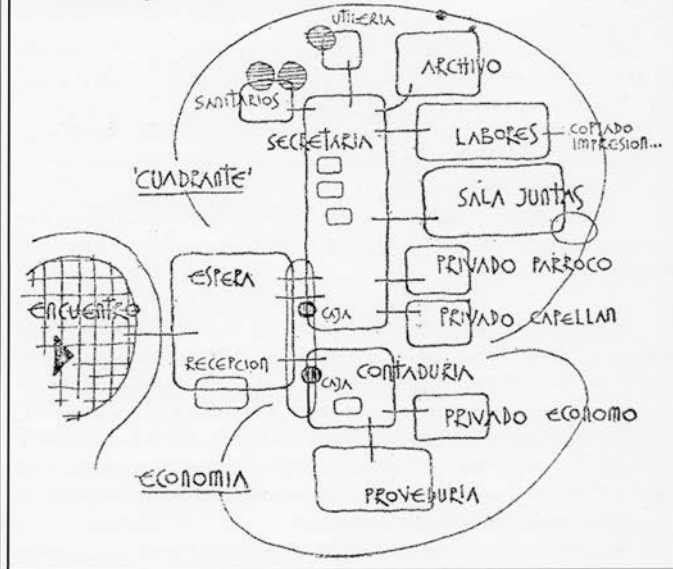 UTILERIA
ARCHIVO
SANITARIOS
SECRETARIA
LABORES
COPIADO
IMPRESION...
'CUADRANTE'
SALA JUNTAS
ESPERA
PRIVADO PÁRROCO
ENCUENTRO
CAJA
PRIVADO CAPELLAN
RECEPCION
CONTADURIA
CAJA
PRIVADO ECONOMO
ECONOMIA
PROVEDURIA